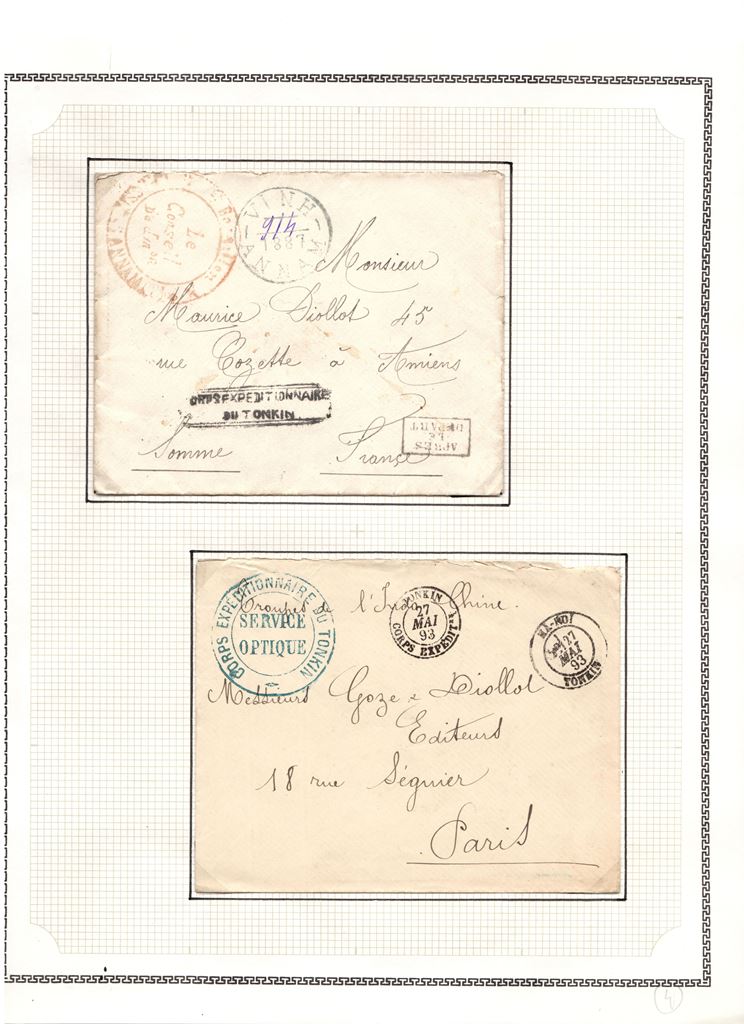 Le
Conseil
VINH
9/4
1887
ANNAM
Monsieur
Maurice Diollot 45
rue Cozette à Amiens
CORPS EXPEDITIONNAIRE
DU TONKIN
APRÈS
LE
DÉPART
Somme
France
CORPS EXPÉDITIONNAIRE DU TONKIN
SERVICE
OPTIQUE
Troupes de l'Indo Chine.
TONKIN
27
MAI
93
CORPS EXPEDIT
HA-NOI
27
MAI
93
TONKIN
Messieurs Goze & Diollot
Editeurs
18 rue Séguier
Paris
4